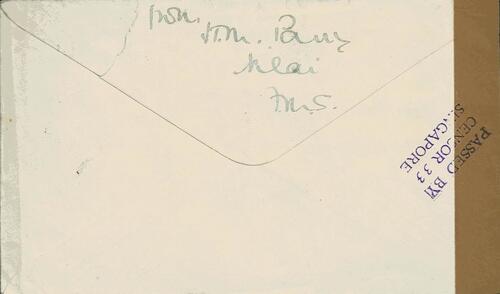 from.
H.M. Parry
Klai
F.M.S.
PASSED BY
CENSOR 33
SINGAPORE